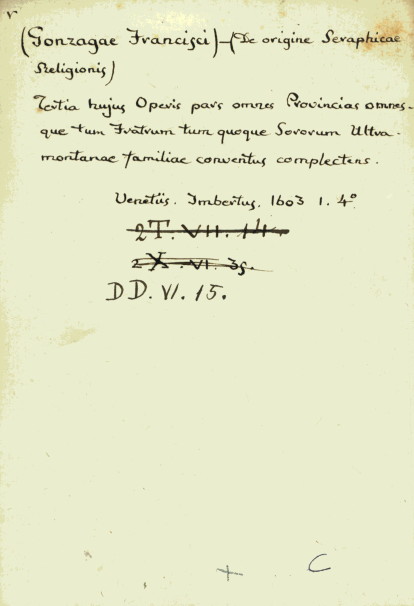 v
(Gonzagae Francisci) - (De origine Seraphicae
Religionis)
Tertia hujus Operis pars omnes Provincias omnes-
que tum Fratrum tum quoque Sororum Ultra-
montanae familiae conventus complectens.
Venetiis. Imbertus. 1603 1. 4º
2T. VII. 14.
2X. VI. 35.
DD. VI. 15.
+ C